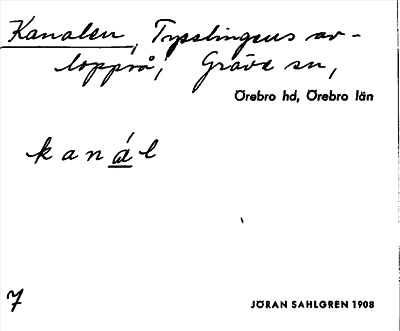 Kanalen, Tysslingens av-
loppså, Gräve sn,
Örebro hd, Örebro län
kanál
7
JÖRAN SAHLGREN 1908